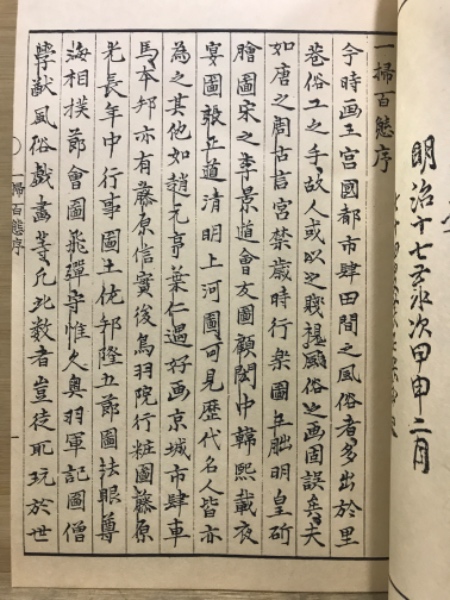 明治十七
次甲申二月
一掃百態序
今時画王宮國都市肆田間之風俗者多出於里
巷俗工之手故人或以之賤視風俗之画固誤矣夫
如唐之周古言宮禁歳時行楽圖五朏明皇斫
膾圖宋之李景道會友圖顧閎中韓熙載夜
宴圖張正道清明上河圖可見歴代名人皆亦
為之其他如趙元亨葉仁遇好画京城市肆車
馬本邦亦有藤原信實後鳥羽院行粧圖藤原
光長年中行事圖土佐邦隆五節圖法眼尊
海相撲節會圖飛彈守惟久奥羽軍記圖僧
覺猷風俗戯畫等凡此数者豈徒耽玩於世
一掃百態序
一